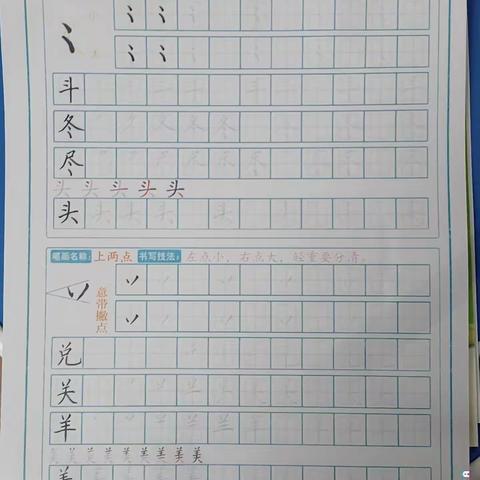 冫 冫 冫
冫 冫
斗
冬
尽
头 头 头 头 头
头
笔画名称: 上两点 书写技法: 左点小，右点大，轻重要分清。
意带撇点
丷 丷
丷
兑
关
羊
美 美 美 美 美 美 美 美
美